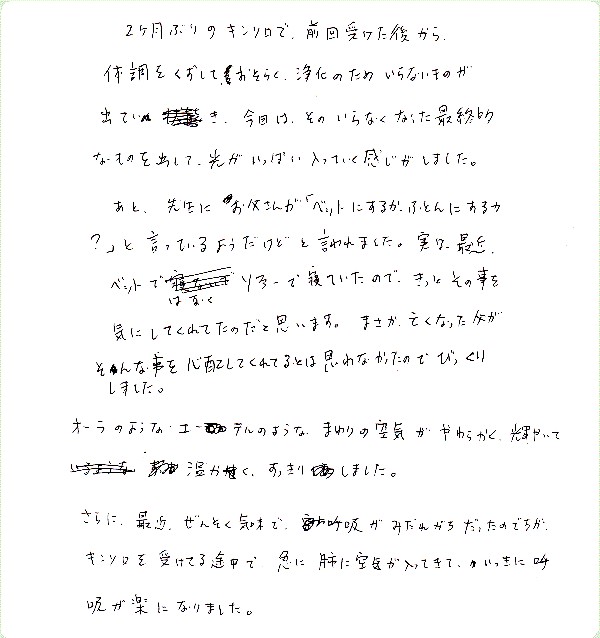 2ヶ月ぶりのキンソロで、前回受けた後から、
体調をくずして、おそらく、浄化のためいらないものが
出ていき、今回は、そのいらなくなった最終的
なものを出して、光がいっぱい入っていく感じがしました。
あと、先生にお父さんが「ベットにするか、ふとんにするか
?」と言っているようだけどと言われました。実は、最近、
ベットではなくソファーで寝ていたので、きっとその事を
気にしてくれてたのだと思います。まさか、亡くなった父が
そんな事を心配してくれてるとは思わなかったのでびっくり
しました。
オーラのような、エーテルのような、まわりの空気がやわらかく、輝いて
温かく、すっきりしました。
さらに、最近、ぜんそく気味で、呼吸がみだれがちだったのですが、
キンソロを受けてる途中で、急に肺に空気が入ってきて、いっきに呼
吸が楽になりました。